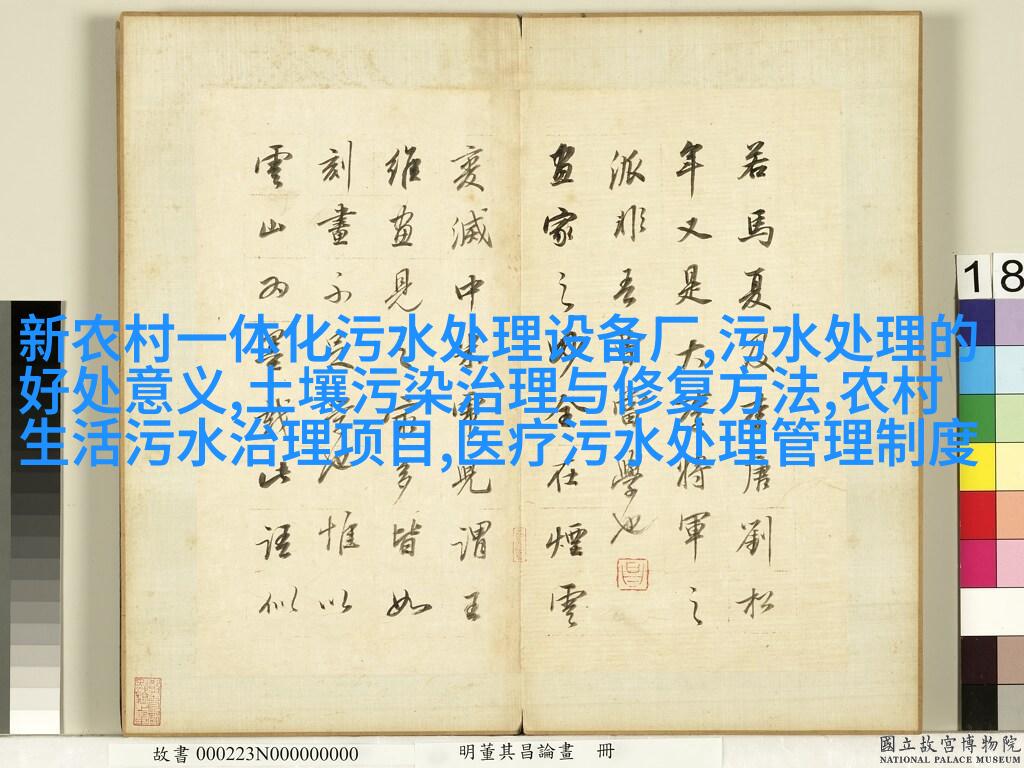 新农村一体化污水处理设备厂,污水处理的
好处意义,土壤污染治理与修复方法,农村
生活污水治理项目,医疗污水处理管理制度
若馬夏及李唐劉松
年又是大李將軍之
派非吾曹當學也
畫家之妙全在煙雲
變滅中米虎兒謂王
維畫見之最多皆如
刻畫不足學也惟以
雲山為墨戲此語似
18
故書 000223N000000000
明董其昌論畫 冊
國立故宮博物院
NATIONAL PALACE MUSEUM